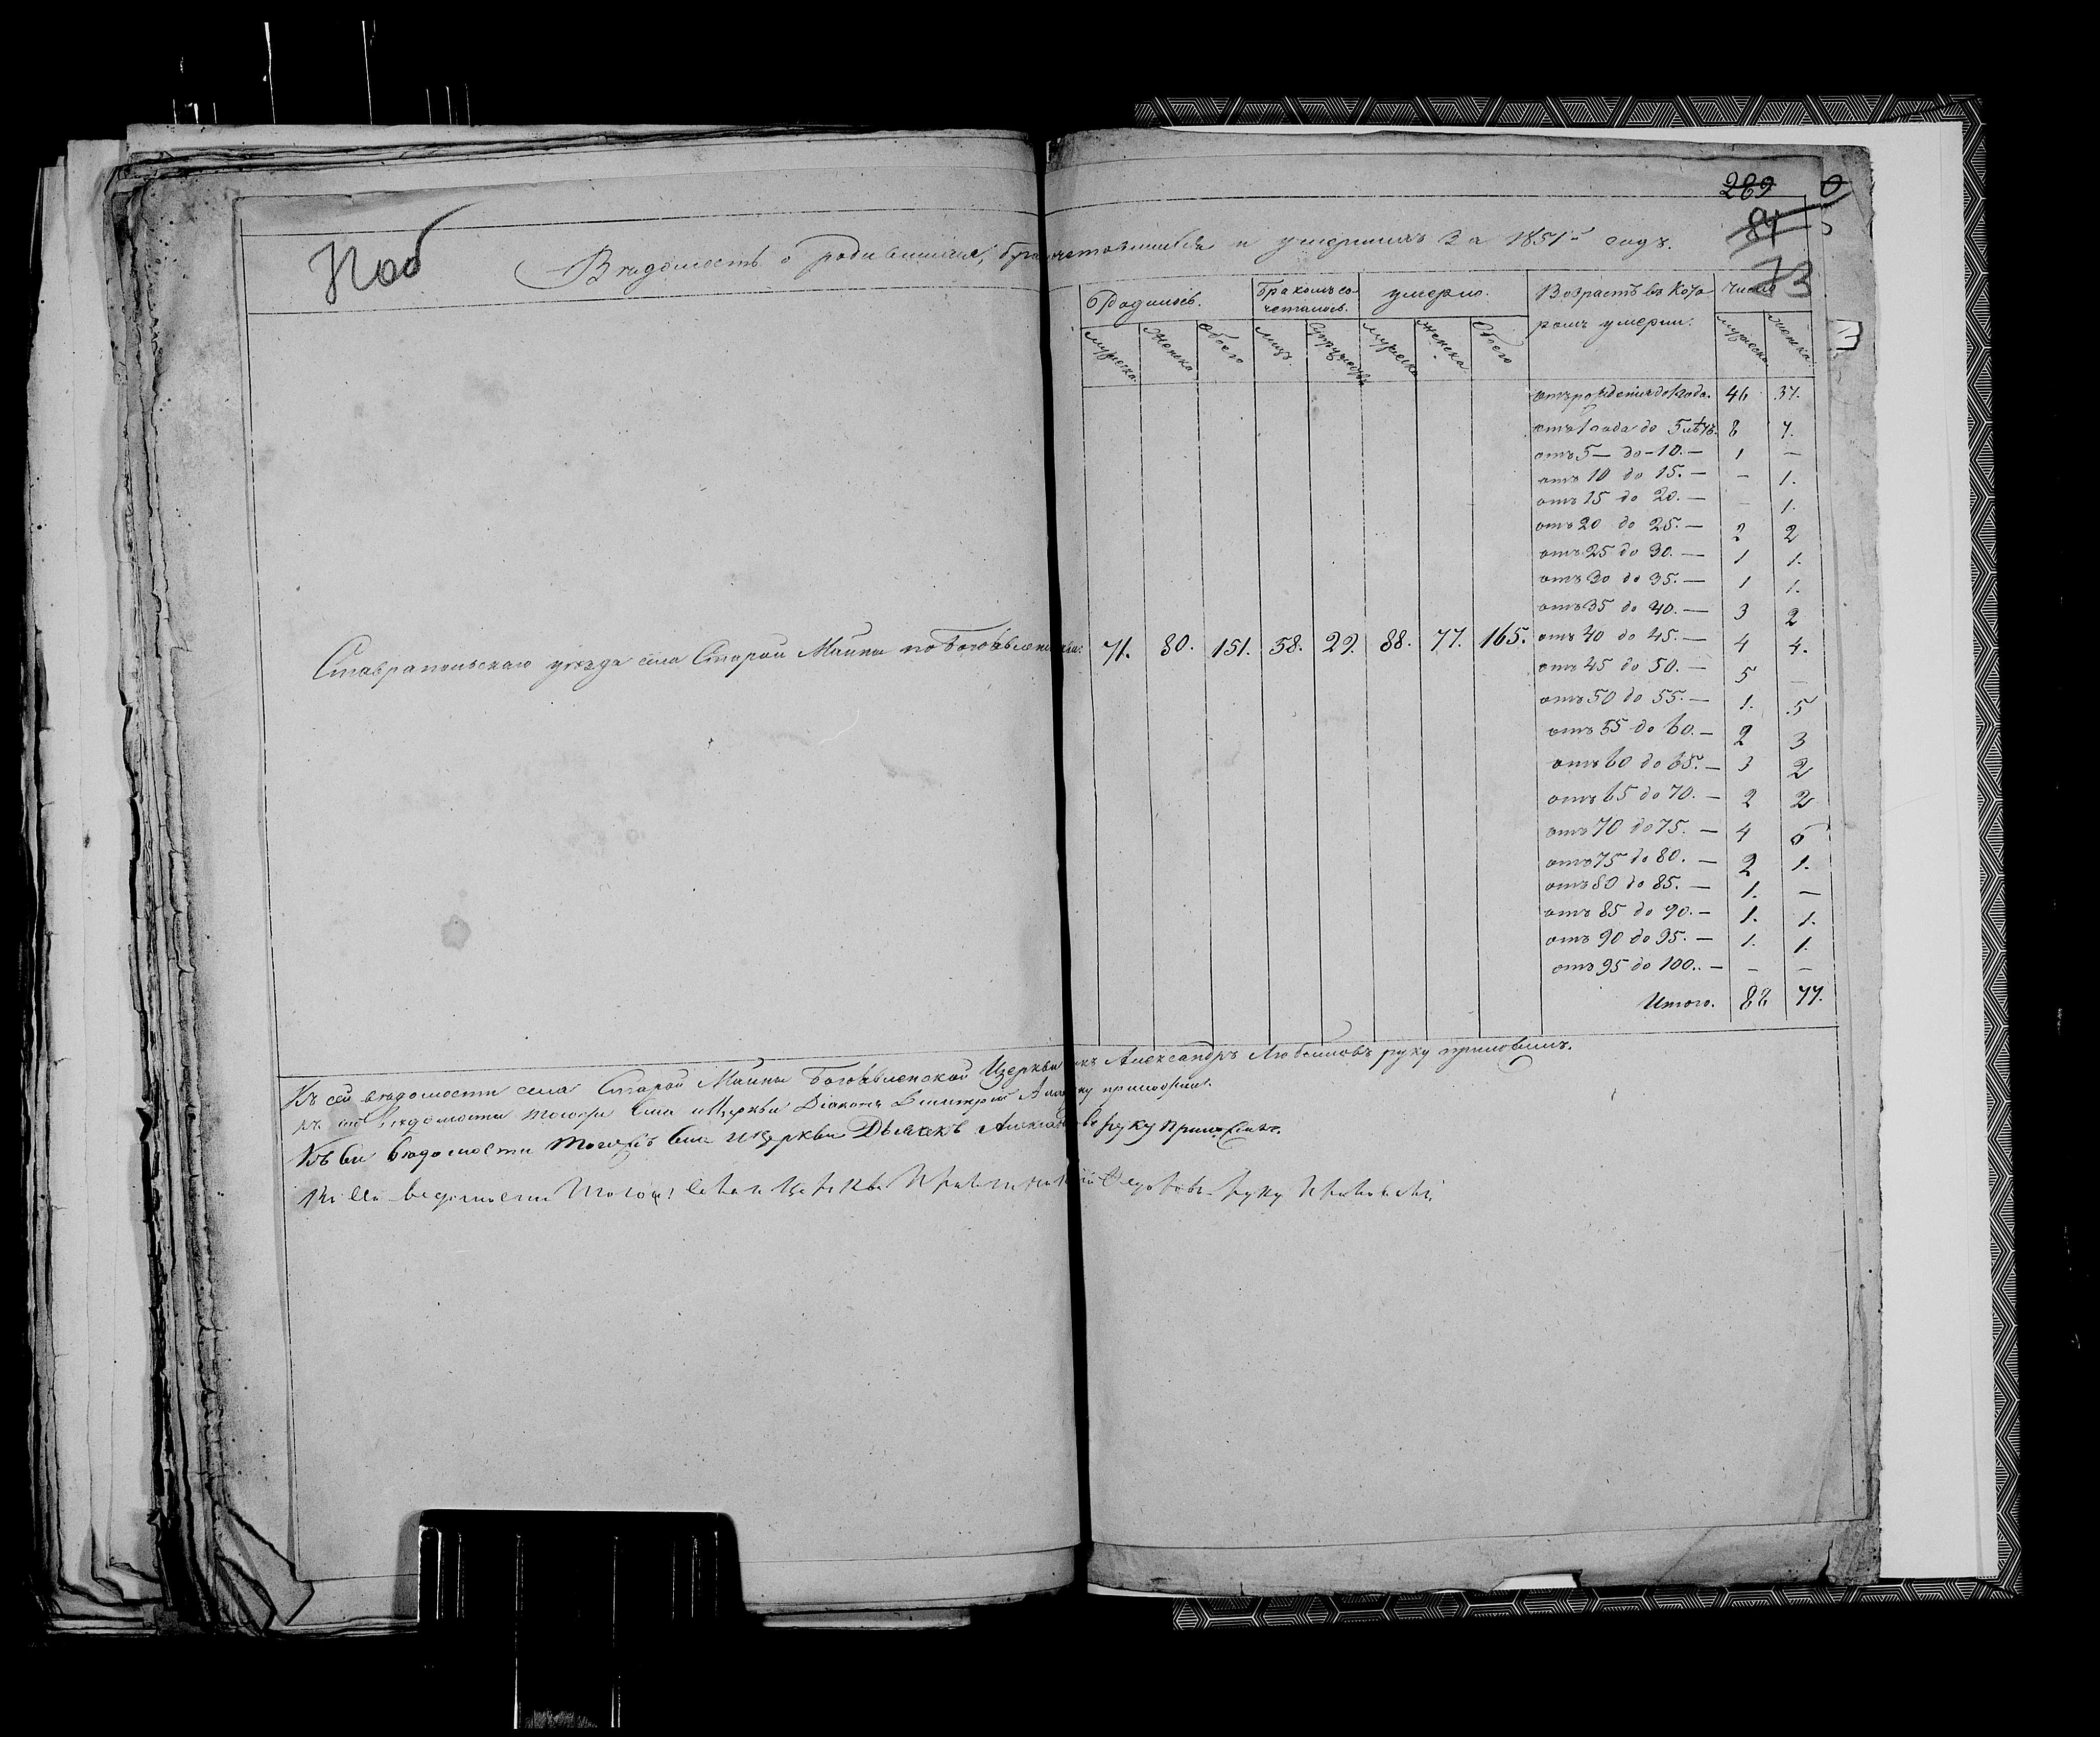 289
84
73
Ноб
Вѣдомость о родившихся, бракосочетавшихся и умершихъ за 1851й годъ.
Родилось. Бракомъ сочеталось. умерло. Возрастъ въ кото число
ромъ умерли.
мужеска. женска обоего лицъ. супружествъ мужеска женска обоего мужеска женска
отъ рожденія до 1 года. 46 37.
отъ 1 года до 5 лѣтъ. 8 7.
отъ 5 — до - 10. — 1 —
отъ 10 до 15. — — 1.
отъ 15 до 20. — — 1.
отъ 20 до 25. — 2 2
отъ 25 до 30. — 1 1.
отъ 30 до 35. — 1 1.
отъ 35 до 40. — 3 2
Ставропольскаго уѣзда села Старой Майны по Богоявленской 71. 80. 151. 58. 29. 88. 77. 165. отъ 40 до 45. — 4 4.
отъ 45 до 50. — 5 —
отъ 50 до 55. — 1. 5
отъ 55 до 60. — 2 3
отъ 60 до 65. — 3 2
отъ 65 до 70. — 2 2
отъ 70 до 75. — 4 6
отъ 75 до 80. — 2 1.
отъ 80 до 85. — 1. —
отъ 85 до 90. — 1. 1.
отъ 90 до 95. — 1. 1.
отъ 95 до 100. — — —
Итого. 88 77.
Къ сей вѣдомости села Старой Майны Богоявленской Церкви Александръ Любимовъ руку приложилъ.
Къ сей вѣдомости тогожъ села и Церкви Діаконъ Димитрій руку приложилъ.
Къ сей вѣдомости тогожъ села и Церкви Дьячекъ руку приложилъ.
Къ сей ведомости тогожъ села и Церкви Федоровъ руку приложилъ